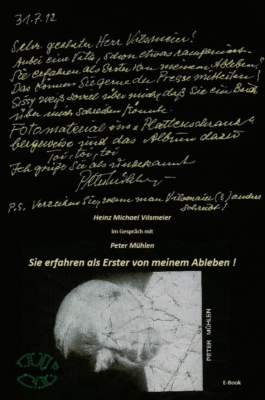 31.7.12
Sehr geehrter Herr Vilsmeier!
Anbei eine Fülle, schon etwas
Sie erfahren als Erster von meinem Ableben!
Das können Sie gerne der Presse mitteilen!
Sissy weiß soviel über mich, daß Sie ein Buch
über mich schreiben könnte.
Fotomaterial im Plattenschrank
bergeweise und das Album dazu
Toi, toi, toi
Ich grüße Sie als unbekannt
P.S. Verzeihen Sie, wenn man Vilsmaier (?) anders
schreibt!
Heinz Michael Vilsmeier
im Gespräch mit
Peter Mühlen
Sie erfahren als Erster von meinem Ableben !
PETER MÜHLEN
E-Book